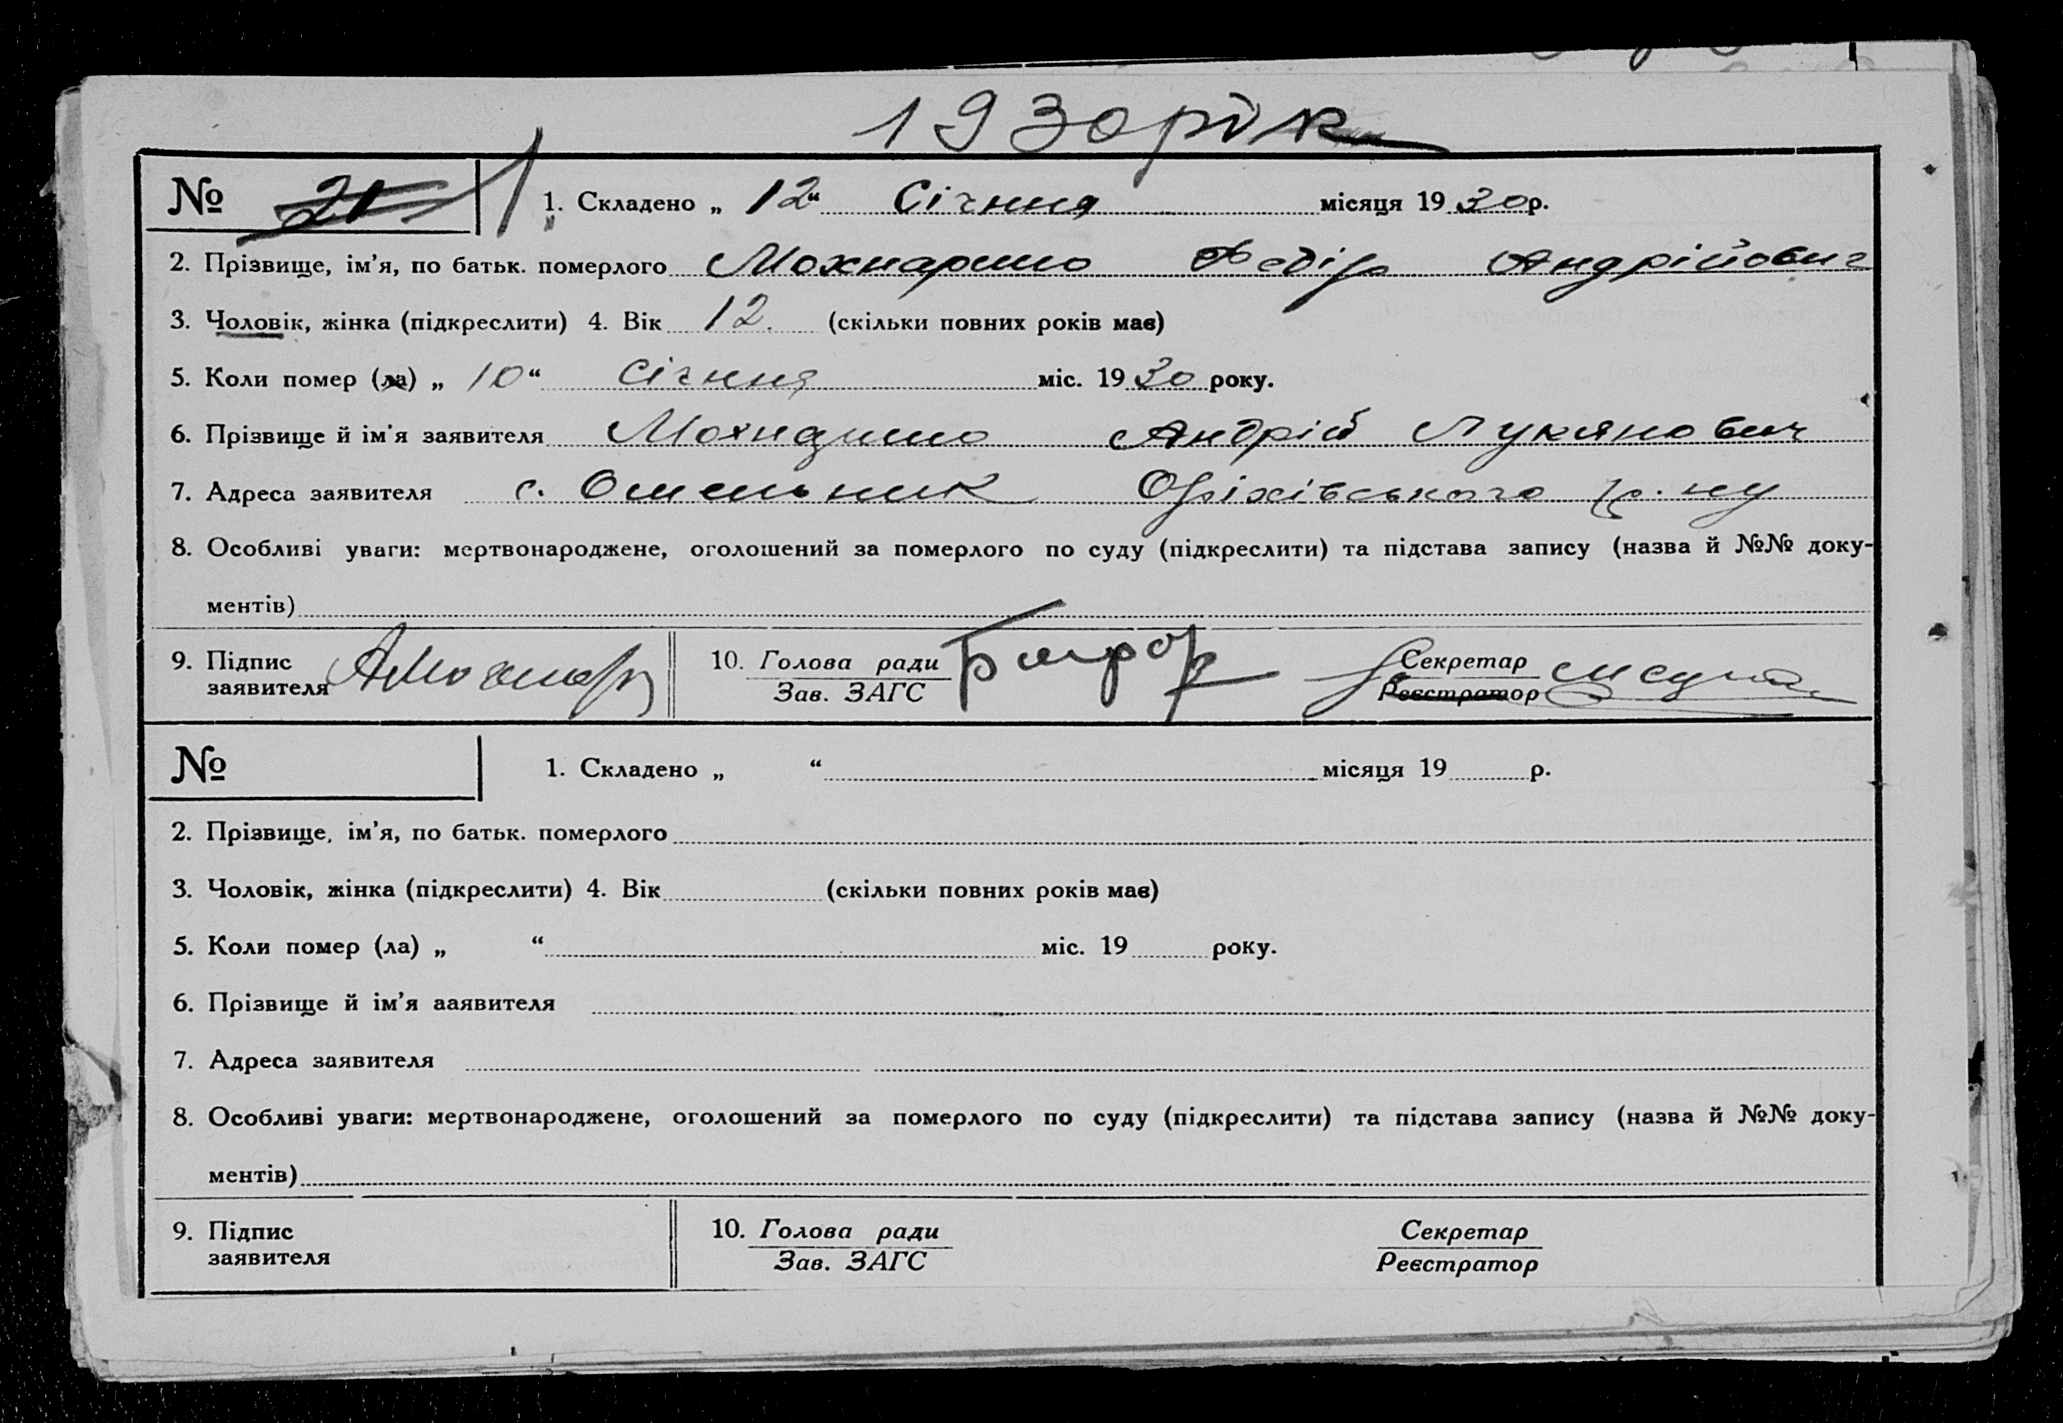 1930 рік
№ 21 1 1. Складено „ 12 “ Січния місяця 1930 р.
2. Прізвище, ім’я, по батьк. померлого Федір Андрійович
3. Чоловік, жінка (підкреслити) 4. Вік 12. (скільки повних років має)
5. Коли помер (ла) „ 10 “ Січня міс. 1930 року.
6. Прізвище й ім’я заявителя Андрій Лукянович
7. Адреса заявителя с. Омельник Оріхівського р. ну
8. Особливі уваги: мертвонароджене, оголошений за померлого по суду (підкреслити) та підстава запису (назва й №№ доку-
ментів)
9. Підпис
заявителя
10. Голова ради
Зав. ЗАГС
Секретар
Реєстратор
№ 1. Складено „ “ місяця 19 р.
2. Прізвище, ім’я, по батьк. померлого
3. Чоловік, жінка (підкреслити) 4. Вік (скільки повних років має)
5. Коли помер (ла) „ “ міс. 19 року.
6. Прізвище й ім’я ааявителя
7. Адреса заявителя
8. Особливі уваги: мертвонароджене, оголошений за померлого по суду (підкреслити) та підстава запису (назва й №№ доку-
ментів)
9. Підпис
заявителя
10. Голова ради
Зав. ЗАГС
Секретар
Реєстратор